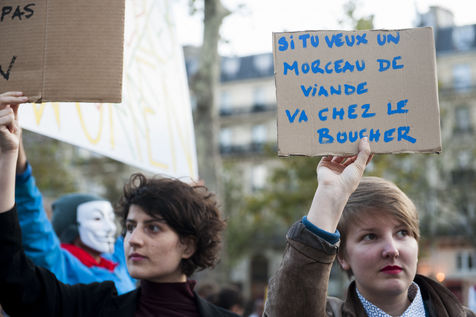 PAS
SI TU VEUX UN
MORCEAU DE
VIANDE
VA CHEZ LE
BOUCHER